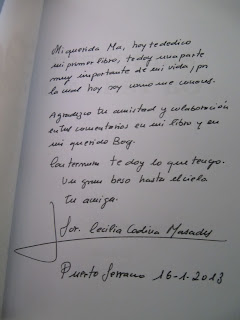 Mi querida Ma, hoy te dedico
mi primer libro, te doy una parte
muy importante de mi vida, por
la cual hoy soy como me conoces.
Agradezco tu amistad y colaboración
en tus comentarios en mi libro y en
mi querido Bog.
Con ternura te doy lo que tengo.
Un gran beso hasta el cielo
tu amiga.
Sor. Cecilia Codina Masachs
Puerto Serrano 16-1-2013